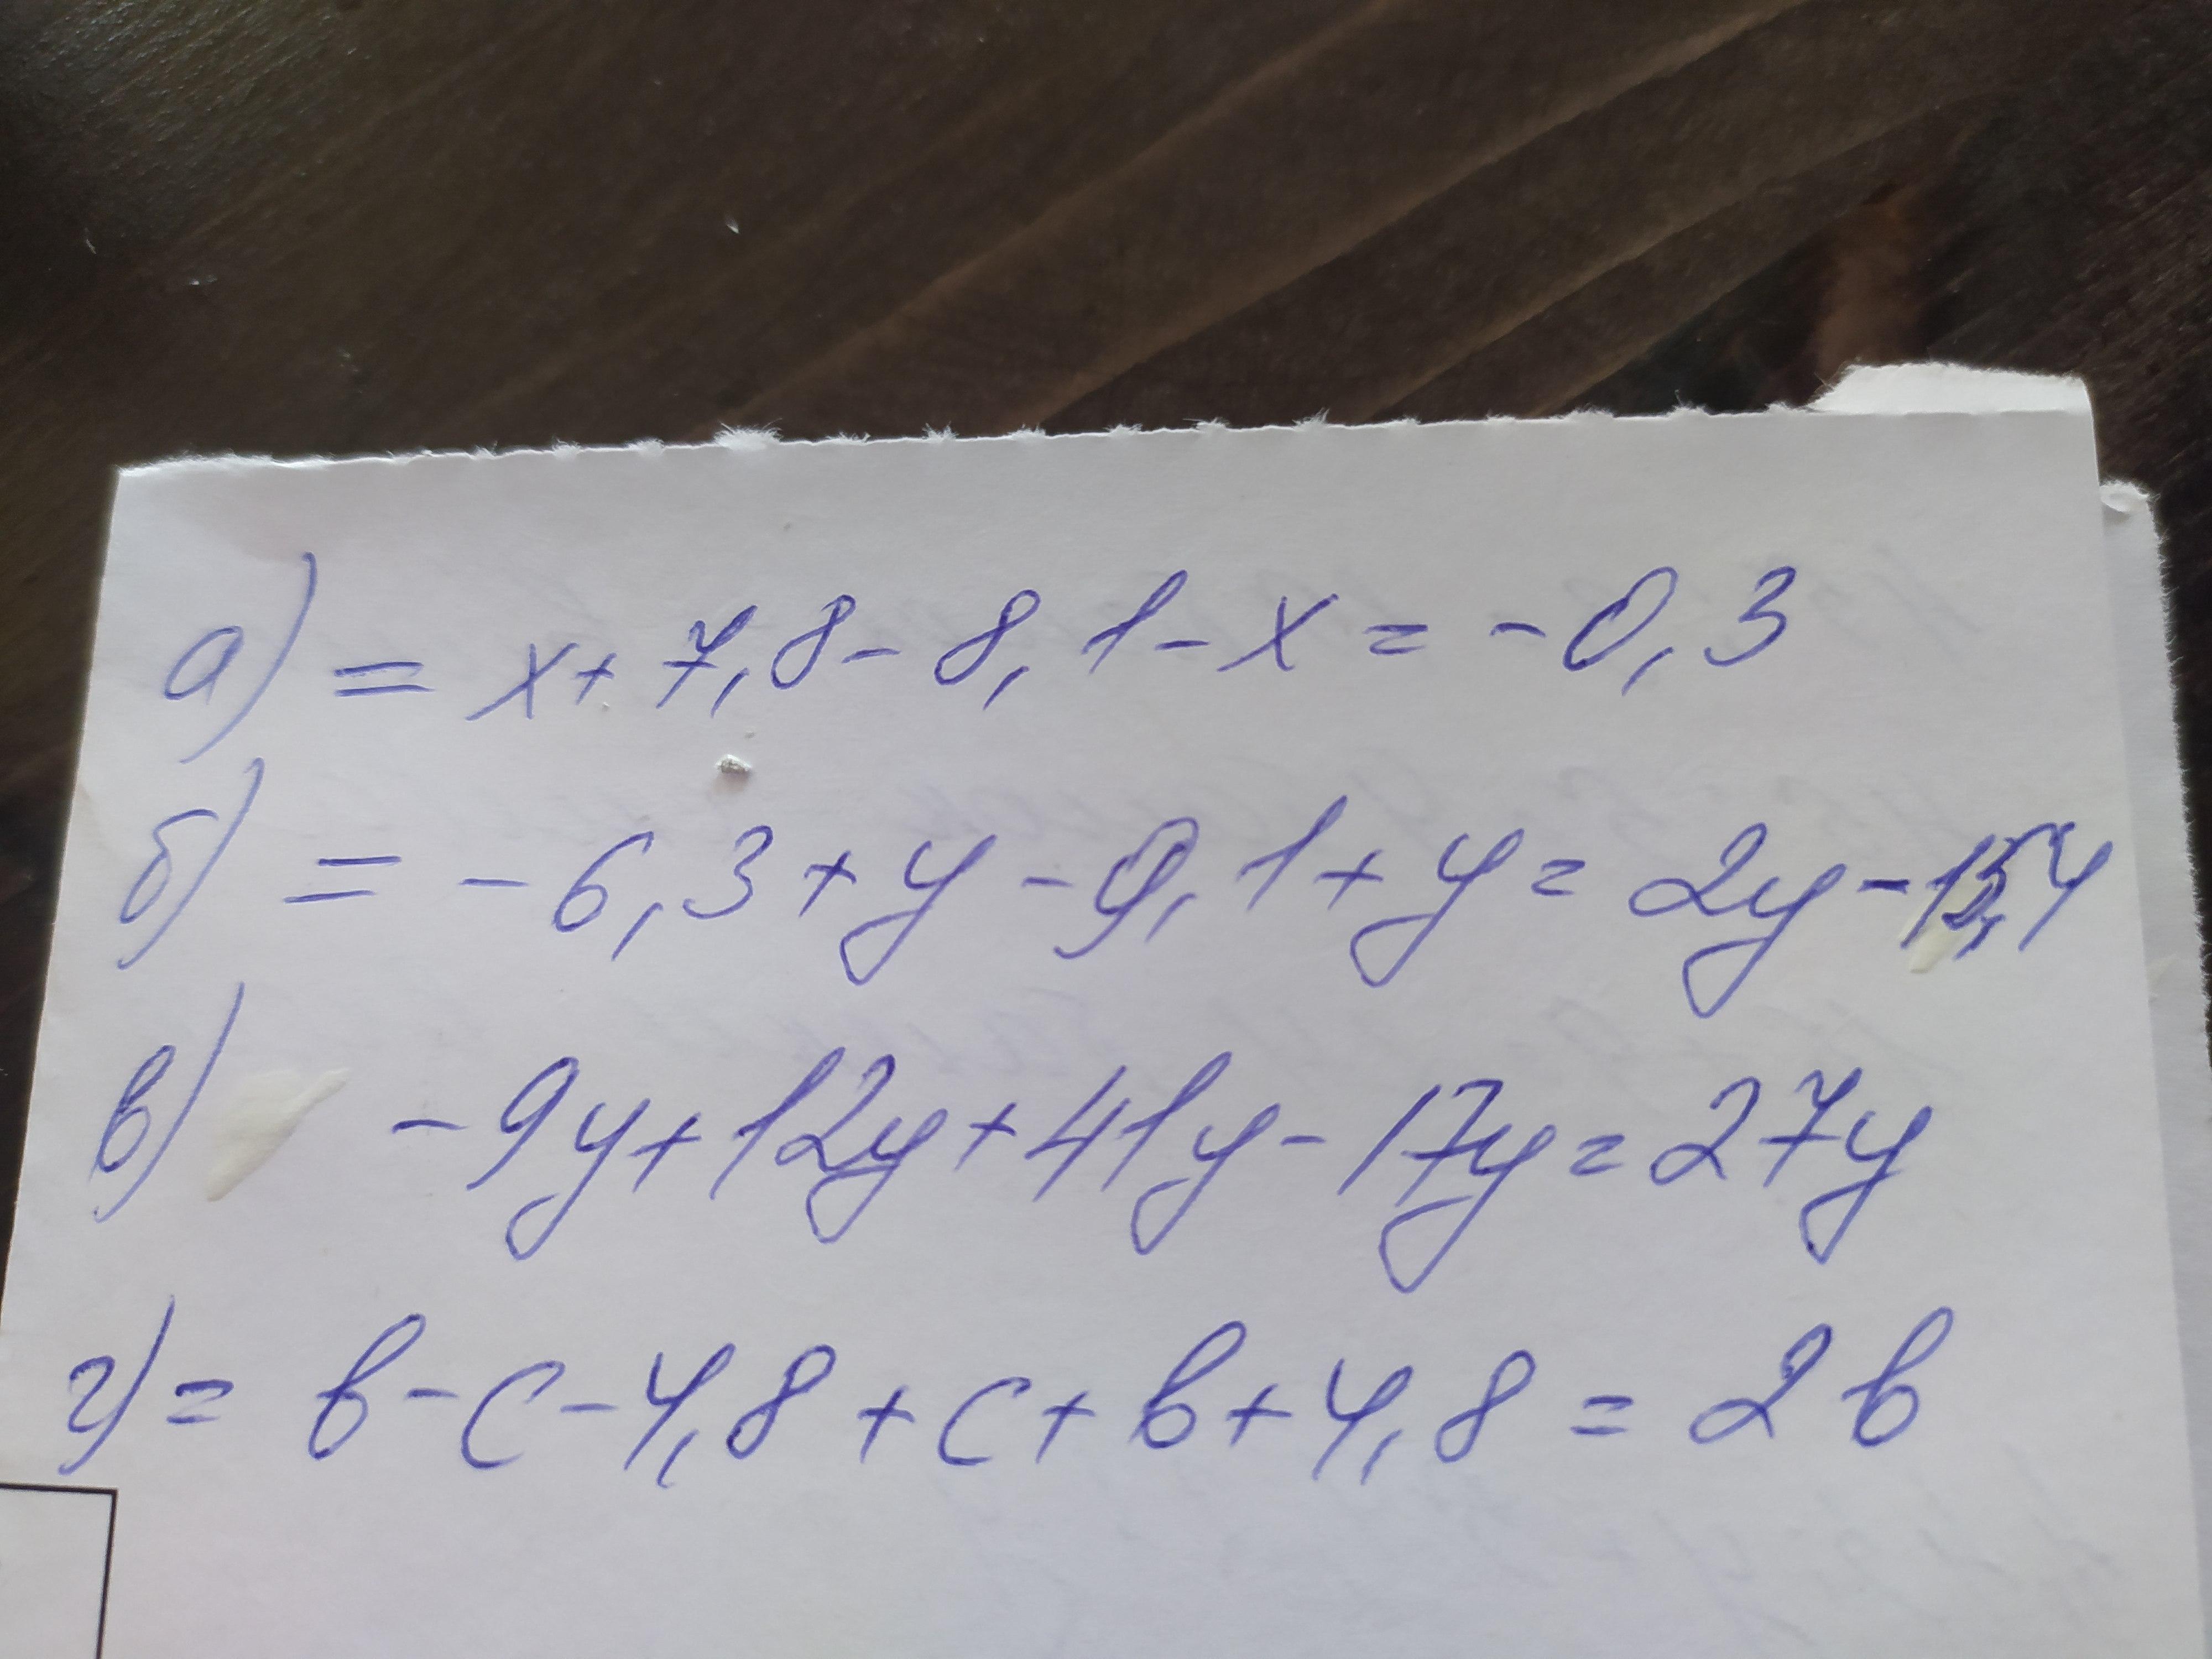 а) = x + 7,8 - 8,1 - x = -0,3
б) = -6,3 + y - 9,1 + y = 2y - 15,4
в) -9y + 12y + 41y - 17y = 27y
г) = b - c - 4,8 + c + b + 4,8 = 2b